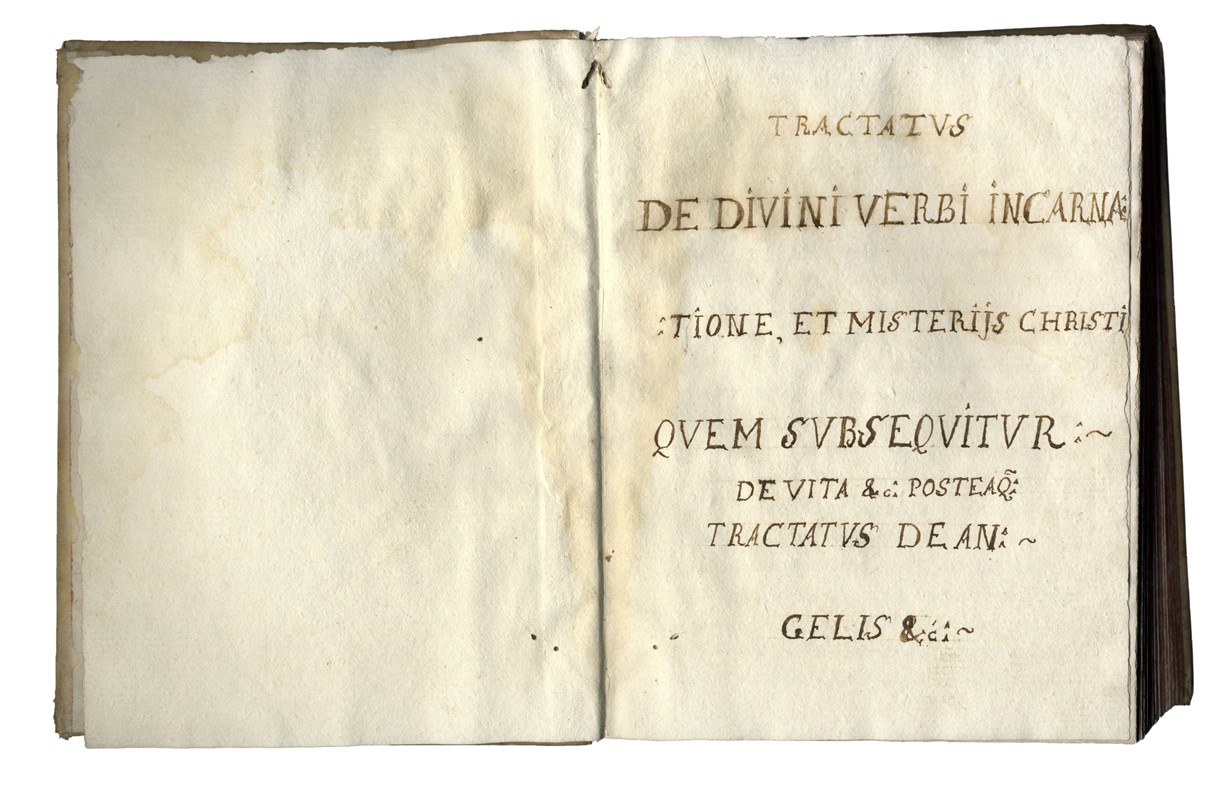 TRACTATVS
DE DIVINI VERBI INCARNA:
:TIONE, ET MISTERIJS CHRISTI
QVEM SVBSEQVITVR :~
DE VITA &c: POSTEAQ̃:
TRACTATVS DE AN: ~
GELIS &c: ~